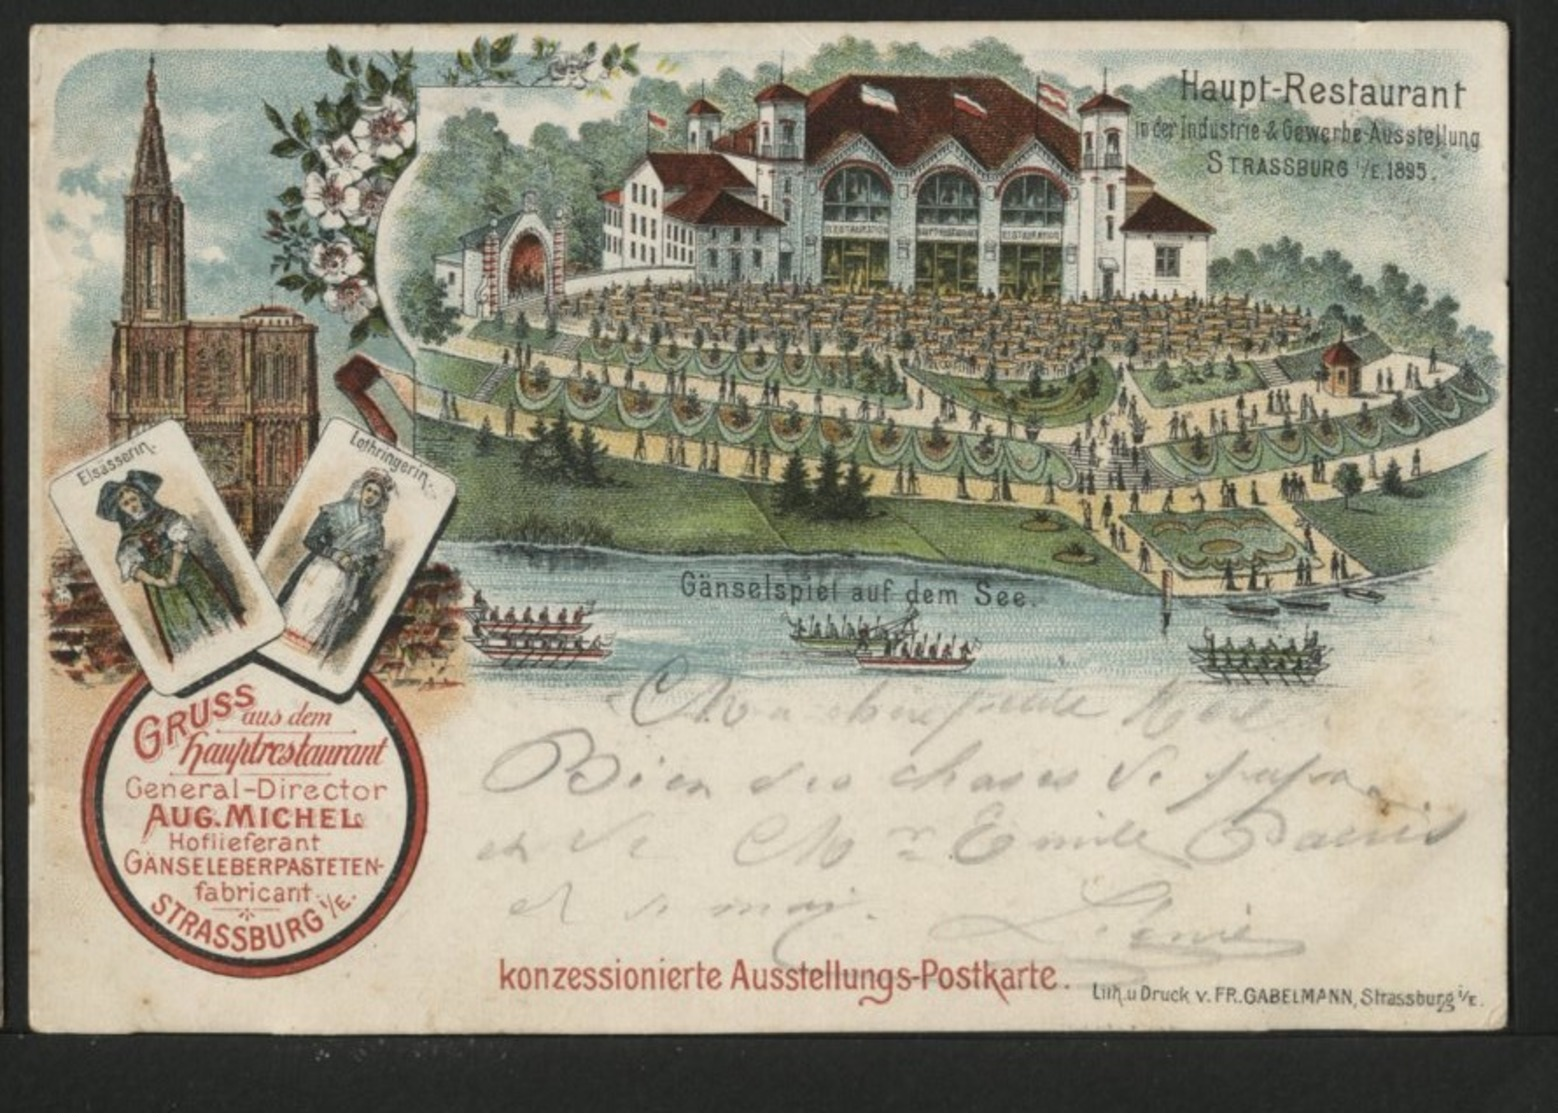 Haupt-Restaurant
in der Industrie-& Gewerbe-Ausstellung
STRASSBURG i/E. 1895.
RESTAURATION HAUPTRESTAURANT RESTAURATION
Elsässerin.
Lothringerin.
Gänselspiel auf dem See.
GRUSS
aus dem
Hauptrestaurant
General-Director
AUG. MICHEL
Hoflieferant
GÄNSELEBERPASTETEN-
fabricant.
STRASSBURG i/E.
Ma chere petite
Bien des choses de papa
et de Mr Emile
et de moi.
konzessionierte Ausstellungs-Postkarte.
Lith. u Druck v. FR. GABELMANN, Strassburg i/E.